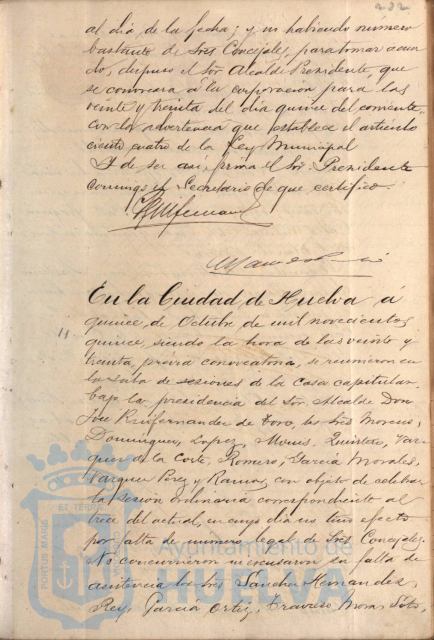 232
al día, de la fecha; y no habiendo número
bastante de Sres Concejales, para tomar acuer
do, dispuso el Sor Alcalde Presidente, que
se convocara a la corporación para las
veinte y treinta del día quince del corriente
con la advertencia que establece el artículo
ciento cuatro de la Ley Municipal
Y de ser así, firma el Sor Presidente
conmigo el Secretario de que certifico.
En la Ciudad de Huelva á
quince, de Octubre de mil novecientos
quince, siendo la hora de las veinte y
treinta, prévia convocatoria, se reunieron en
la Sala de sesiones de la Casa capitular
bajo la presidencia del Sor Alcalde Don
José Ruifernandez de Toro, los Sres Moreno,
Dominguez, Lopez, Mones, Quintero, Vaz
quez de la Corte, Romero, García Morales,
Vazquez Perez y Ramos, con objeto de celebrar
la sesión ordinaria correspondiente al
trece del actual, en cuyo dia no tuvo efecto
por falta de número legal de Sres Concejales.
No concurrieron ni excusaron su falta de
asistencia los Sres Sanchez Hernandez,
Rey, García Ortiz, Travieso, Mora, Soto,
PORTUS MARIS
ET TERRAE
Ayuntamiento de
HUELVA